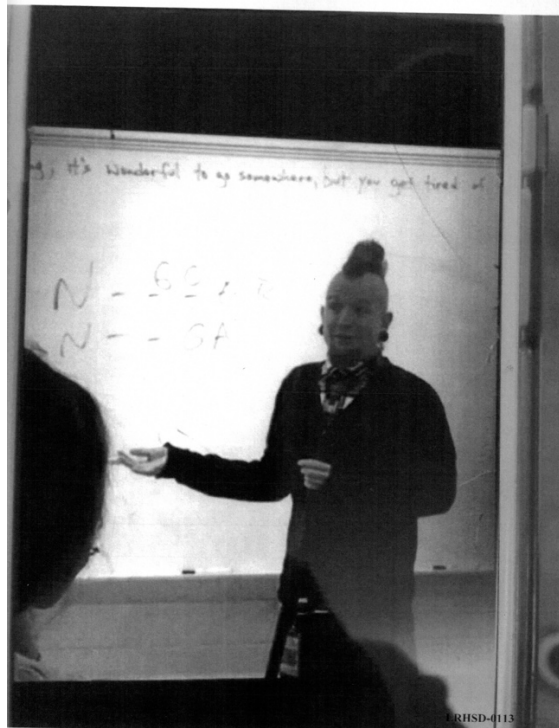 ng, it's wonderful to go somewhere, but you get tired of
N - - GA
LRHSD-0113